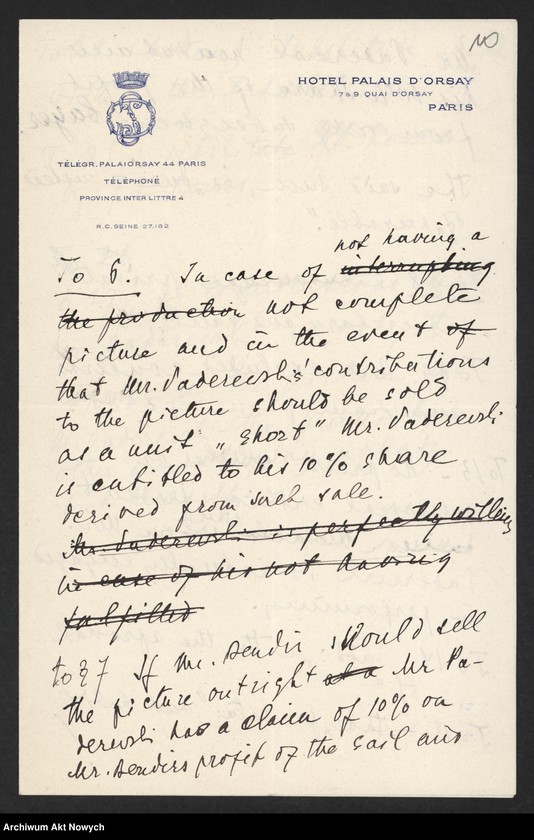 HOTEL PALAIS D'ORSAY
7 & 9. QUAI D'ORSAY
PARIS
TÉLÉGR. PALAIORSAY 44 PARIS
TÉLÉPHONE
PROVINCE INTER LITTRE 4
R.C. SEINE 27.182
not having a
To 6. In case of interrupting
the production not complete
picture and in the event of
that Mr. Paderewski's contributions
to the picture should be sold
as a unit "Short" Mr. Paderewski
is entitled to his 10% share
derived from such sale.
Mr. Paderewski is perfectly willing
in case of his not having
fulfilled
to § 7 If Mr. Sendir should sell
the picture outright Mr Pa-
derewski has a claim of 10% on
Mr. Sendirs profit of the sail and
Archiwum Akt Nowych